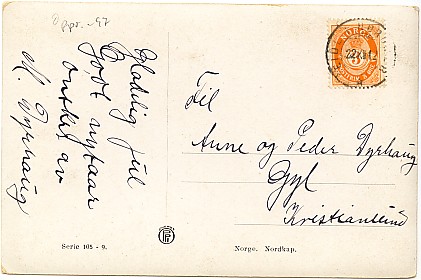 Oppr. -97
Glædelig jul
Godt nytaar
ønskes av
M Dyrhaug
NORGE
3
22 XII 12
Til
Anne og Peder Dyrhaug
Gyl
Kristiansund
Serie 105 - 9.
Norge. Nordkap.